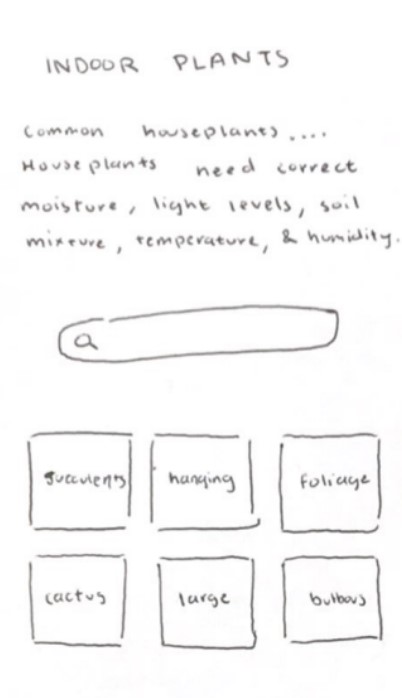 INDOOR PLANTS
Common houseplants....
Houseplants need correct
moisture, light levels, soil
mixture, temperature, & humidity.
succulents hanging foliage
cactus large bulbous